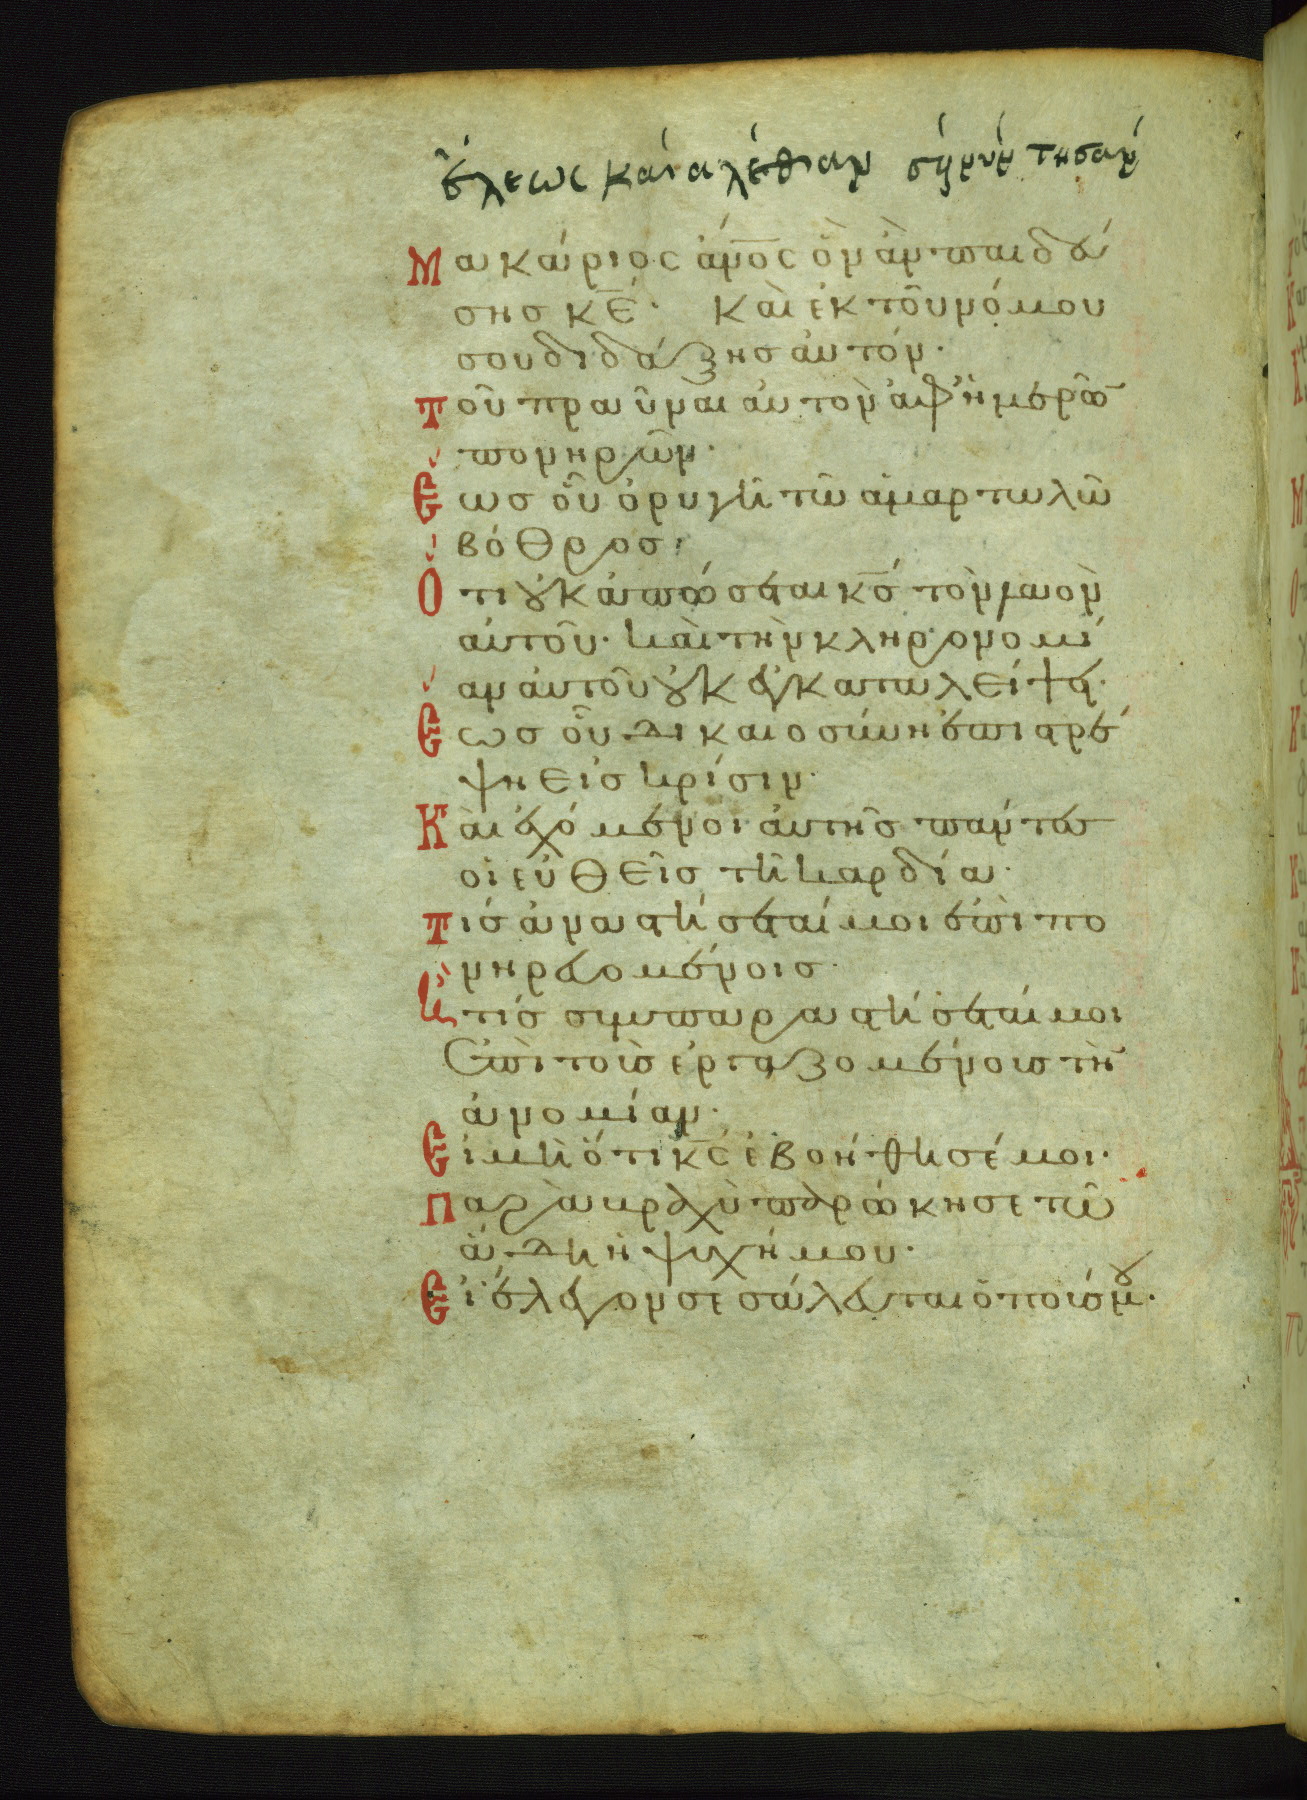 ἔλεως καὶ αλέθιαν σήνὴν τησαν
Μακάριος ἄνος ὃν ἂν παιδεύ
σης κε̄· Καὶ ἐκ τοῦ νόμου
σου διδάξης αὐτόν·
Τοῦ πραῦναι αὐτὸν ἀφ' ἡμερῶ
πονηρῶν·
Εως οὗ ὀρυγῆ τῶ ἁμαρτωλῶ
βόθρος·
Ὅτι οὐκ ἀπώσεται κς̄ τὸν λαὸν
αὐτοῦ· καὶ τὴν κληρονομί
αν αὐτοῦ οὐκ ἐγκαταλείψει·
Εως οὗ δικαιοσύνη ἐπιστρέ
ψη εἰς κρίσιν·
Καὶ ἐχόμενοι αὐτῆς πάντες
οἱ εὐθεῖς τῆ καρδία·
Τίς ἀναστήσεταί μοι ἐπὶ πο
νηρευομένοις·
ἢ τίς συμπαραστήσεταί μοι
ἐπὶ τοῖς ἐργαζομένοις τὴν
ἀνομίαν·
Εἰ μὴ ὅτι κς̄ ἐβοήθησέ μοι·
Παρὰ βραχὺ παρώκησε τῶ
ἅδη ἡ ψυχή μου·
Εἰ ἔλεγον σεσάλευται ὁ ποῦς μου·